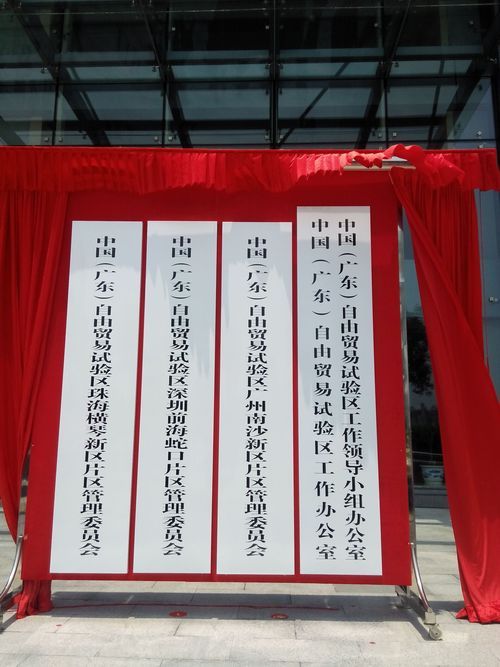 中国（广东）自由贸易试验区工作领导小组办公室
中国（广东）自由贸易试验区工作办公室
中国（广东）自由贸易试验区广州南沙新区片区管理委员会
中国（广东）自由贸易试验区深圳前海蛇口片区管理委员会
中国（广东）自由贸易试验区珠海横琴新区片区管理委员会